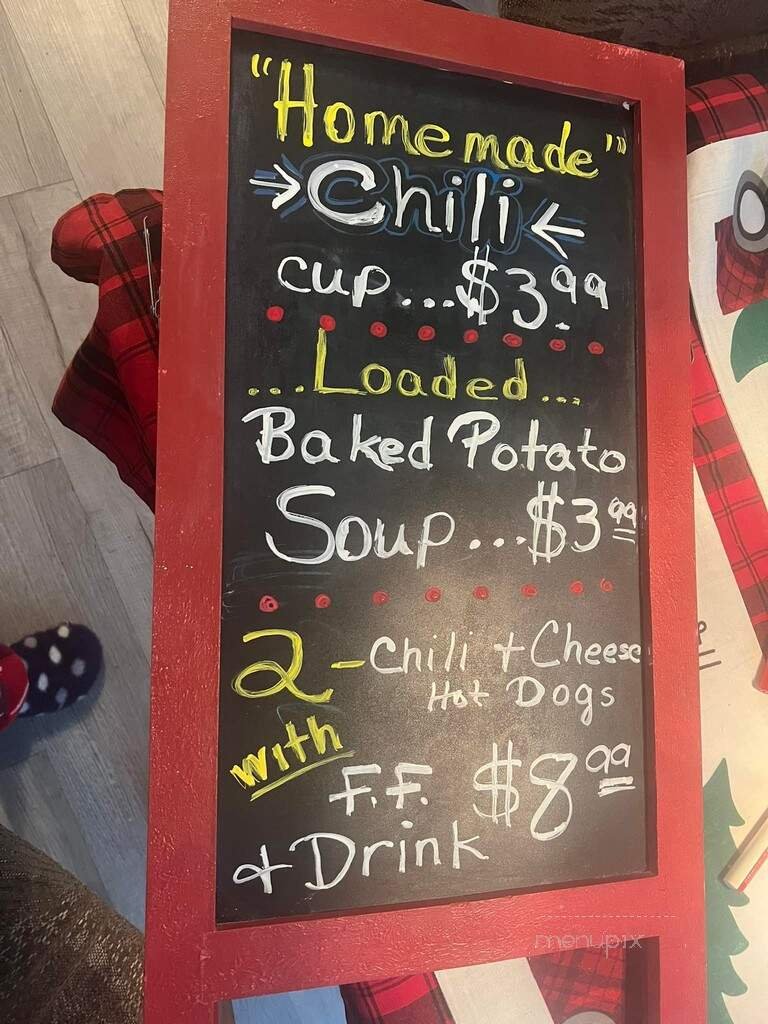 "Homemade"
Chili
cup...$3.99
...Loaded...
Baked Potato
Soup...$3 99
2-Chili + Cheese
Hot Dogs
with
F.F. $8 99
+ Drink
menupix